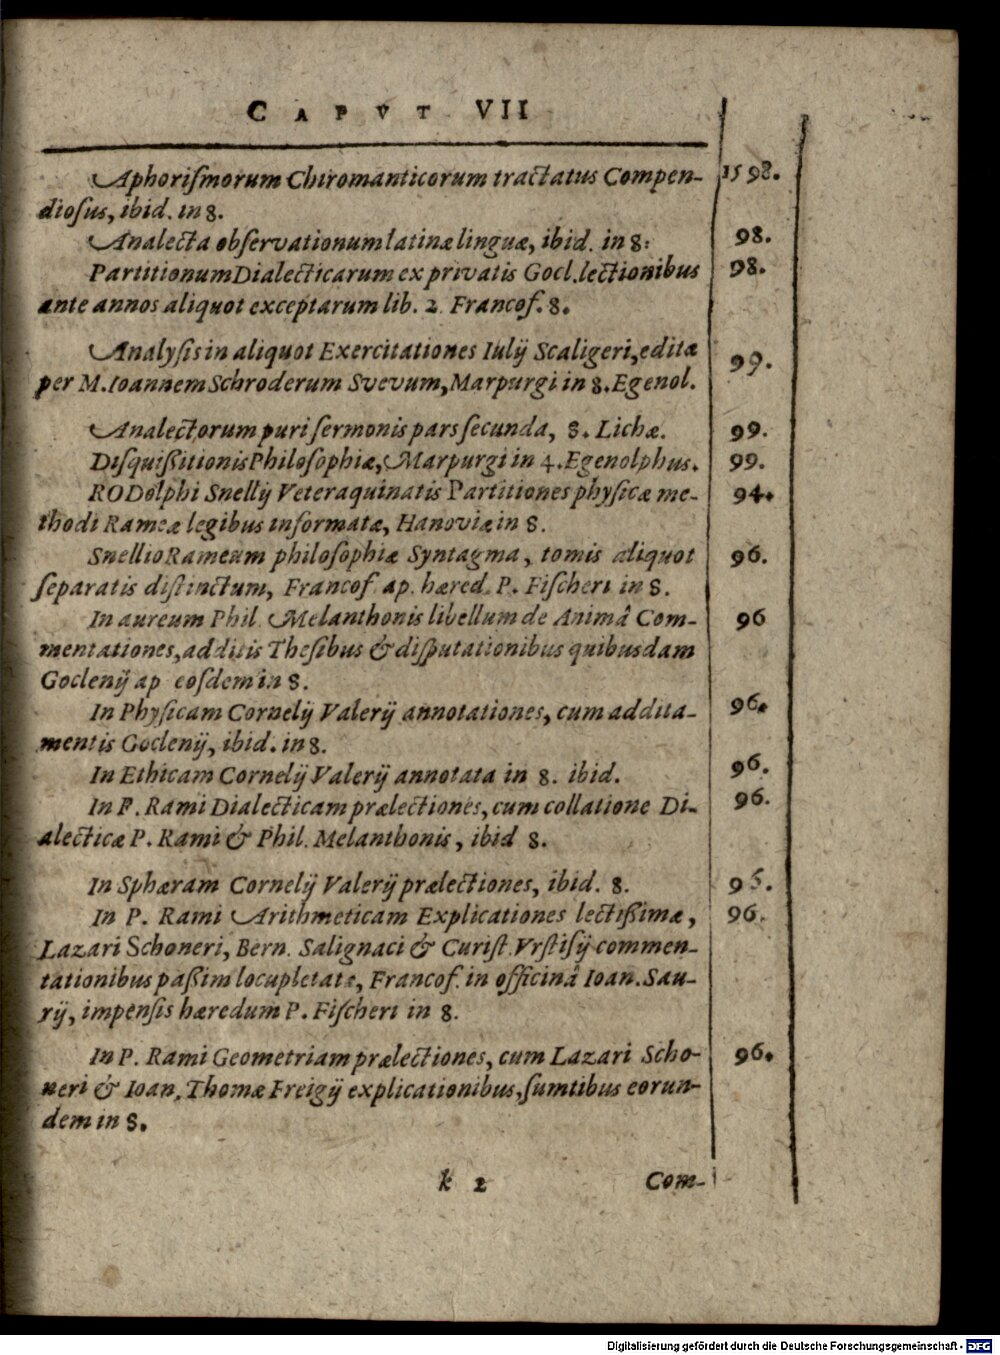 CAPVT VII
Aphoriſmorum Chiromanticorum tractatus Compen- 1598.
dioſus, ibid. in 8.
Analecta obſervationum latinæ linguæ, ibid. in 8: 98.
Partitionum Dialecticarum ex privatis Gocl. lectionibus 98.
ante annos aliquot exceptarum lib. 2. Francof. 8.
Analyſis in aliquot Exercitationes Iulij Scaligeri, edita 99.
per M. Ioannem Schroderum Svevum, Marpurgi in 8. Egenol.
Analectorum puri ſermonis pars ſecunda, 8. Lichæ. 99.
Diſquiſsitionis Philoſophiæ, Marpurgi in 4. Egenolphus. 99.
RODolphi Snellij Veteraquinatis Partitiones phyſicæ me- 94.
thodi Rameæ legibus informatæ, Hanoviæ in 8.
Snellio Rameum philoſophiæ Syntagma, tomis aliquot 96.
ſeparatis diſtinctum, Francof. ap. hæred. P. Fiſcheri in 8.
In aureum Phil. Melanthonis libellum de Animâ Com- 96
mentationes, additis Theſibus & diſputationibus quibusdam
Goclenij ap eoſdem in 8.
In Phyſicam Cornelij Valerij annotationes, cum addita- 96.
mentis Goclenij, ibid. in 8.
In Ethicam Cornelij Valerij annotata in 8. ibid. 96.
In P. Rami Dialecticam prælectiones, cum collatione Di- 96.
alecticæ P. Rami & Phil. Melanthonis, ibid 8.
In Sphæram Cornelij Valerij prælectiones, ibid. 8. 96.
In P. Rami Arithmeticam Explicationes lectiſsimæ, 96.
Lazari Schoneri, Bern. Salignaci & Curiſt. Vrſtiſij commen-
tationibus paſsim locupletatæ, Francof. in officinâ Ioan. Sau-
rij, impenſis hæredum P. Fiſcheri in 8.
In P. Rami Geometriam prælectiones, cum Lazari Scho- 96.
neri & Ioan. Thomæ Freigij explicationibus, ſumtibus eorun-
dem in 8.
k 2 Com-
Digitalisierung gefördert durch die Deutsche Forschungsgemeinschaft - DFG